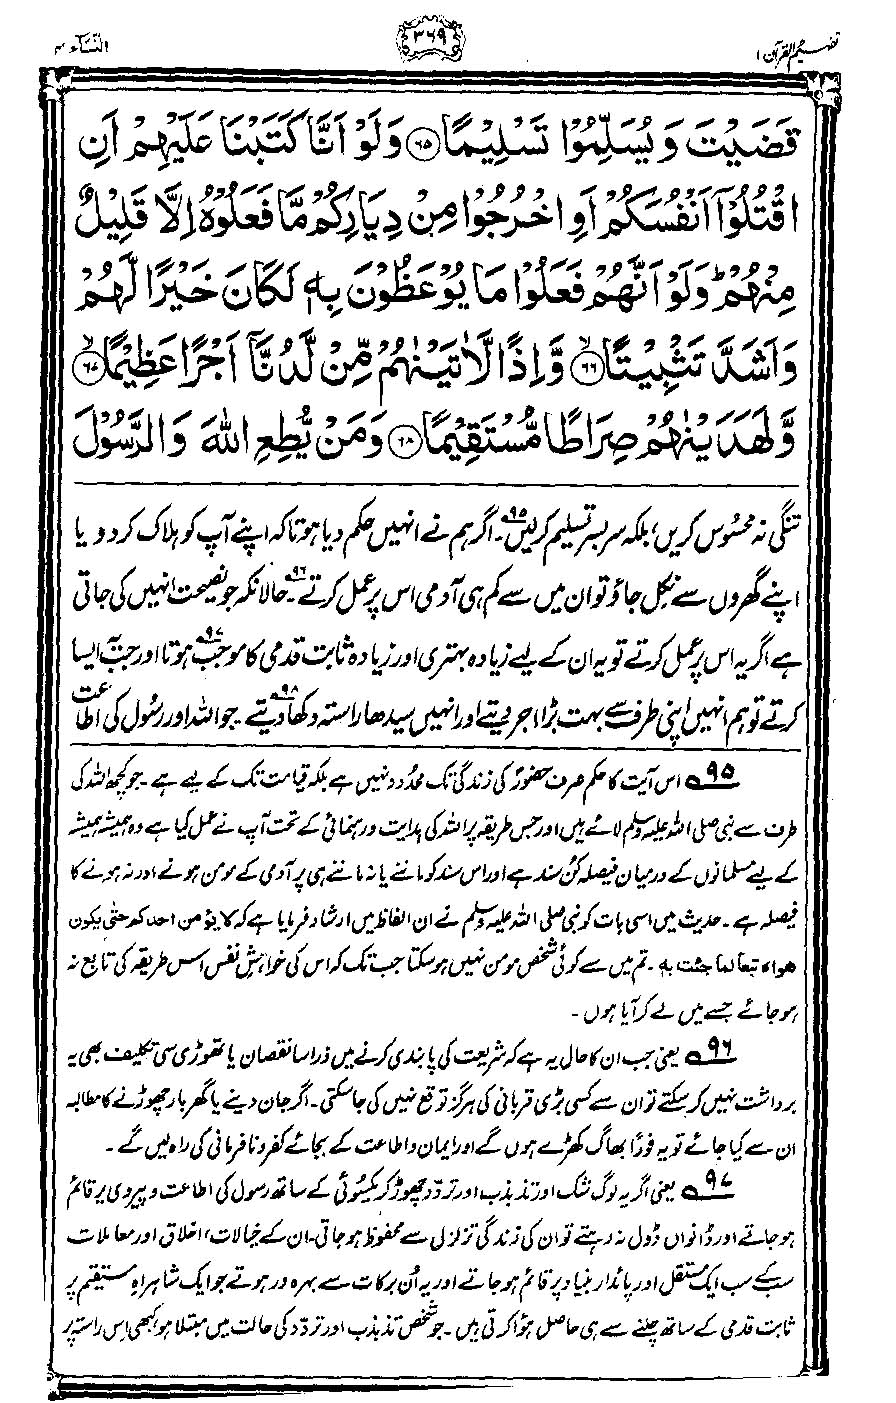 تفہیم القرآن ۱
۳۶۹
النّسَآء ۴
قَضَیْتَ وَیُسَلِّمُوْا تَسْلِیْمًا ﴿۶۵﴾ وَلَوْ اَنَّا كَتَبْنَا عَلَیْهِمْ اَنِ
اقْتُلُوْۤا اَنْفُسَكُمْ اَوِ اخْرُجُوْا مِنْ دِیَارِكُمْ مَّا فَعَلُوْهُ اِلَّا قَلِیْلٌ
مِّنْهُمْ ؕ وَلَوْ اَنَّهُمْ فَعَلُوْا مَا یُوْعَظُوْنَ بِهٖ لَكَانَ خَیْرًا لَّهُمْ
وَاَشَدَّ تَثْبِیْتًا ﴿۶۶﴾ وَّاِذًا لَّاٰتَیْنٰهُمْ مِّنْ لَّدُنَّاۤ اَجْرًا عَظِیْمًا ﴿۶۷﴾
وَّلَهَدَیْنٰهُمْ صِرَاطًا مُّسْتَقِیْمًا ﴿۶۸﴾ وَمَنْ یُّطِعِ اللّٰهَ وَالرَّسُوْلَ
تنگی نہ محسُوس کریں، بلکہ سربسر تسلیم کرلیں۹۵۔ اگر ہم نے انہیں حکم دیا ہوتا کہ اپنے آپ کو ہلاک کردو یا
اپنے گھروں سے نِکل جاؤ تو ان میں سے کم ہی آدمی اس پر عمل کرتے۹۶۔ حالانکہ جو نصیحت انہیں کی جاتی
ہے اگر یہ اس پر عمل کرتے تو یہ ان کے لیے زیادہ بہتری اور زیادہ ثابت قدمی کا موجب۹۷ ہوتا اور جب یہ ایسا
کرتے تو ہم انہیں اپنی طرف سے بہت بڑا اجر دیتے اور انہیں سیدھا راستہ دکھا دیتے۹۸۔ جو اللہ اور رسُول کی اطاعت
۹۵ اس آیت کا حکم صرف حضورؐ کی زندگی تک محدُود نہیں ہے بلکہ قیامت تک کے لیے ہے۔ جو کچھ اللہ کی
طرف سے نبی صلی اللہ علیہ وسلم لائے ہیں اور جس طریقہ پر اللہ کی ہدایت و رہنمائی کے تحت آپ نے عمل کیا ہے وہ ہمیشہ ہمیشہ
کے لیے مسلمانوں کے درمیان فیصلہ کُن سند ہے اور اس سند کو ماننے یا نہ ماننے ہی پر آدمی کے مومن ہونے اور نہ ہونے کا
فیصلہ ہے۔ حدیث میں اسی بات کو نبی صلی اللہ علیہ وسلم نے ان الفاظ میں ارشاد فرمایا ہے کہ لا یؤمن احدکم حتیٰ یکون
ھواہ تبعالما جئت بہٖ۔ تم میں سے کوئی شخص مومن نہیں ہوسکتا جب تک کہ اس کی خواہشِ نفس اس طریقہ کی تابع نہ
ہوجائے جسے میں لے کر آیا ہوں۔
۹۶ یعنی جب ان کا حال یہ ہے کہ شریعت کی پابندی کرنے میں ذرا سا نقصان یا تھوڑی سی تکلیف بھی یہ
برداشت نہیں کرسکتے تو ان سے کسی بڑی قربانی کی ہرگز توقع نہیں کی جاسکتی۔ اگر جان دینے یا گھر بار چھوڑنے کا مطالبہ
ان سے کیا جائے تو یہ فورًا بھاگ کھڑے ہوں گے اور ایمان و اطاعت کے بجائے کفر و نافرمانی کی راہ لیں گے۔
۹۷ یعنی اگر یہ لوگ شک اور تذبذب اور تردّد چھوڑ کر یکسُوئی کے ساتھ رسول کی اطاعت و پیروی پر قائم
ہوجاتے اور ڈانواں ڈول نہ رہتے تو ان کی زندگی تزلزل سے محفوظ ہوجاتی۔ ان کے خیالات، اخلاق اور معاملات
سب کے سب ایک مستقل اور پائدار بنیاد پر قائم ہوجاتے اور یہ اُن برکات سے بہرہ ور ہوتے جو ایک شاہراہِ مستقیم پر
ثابت قدمی کے ساتھ چلنے سے ہی حاصل ہُوا کرتی ہیں۔ جو شخص تذبذب اور تردّد کی حالت میں مبتلا ہو، کبھی اِس راستہ پر